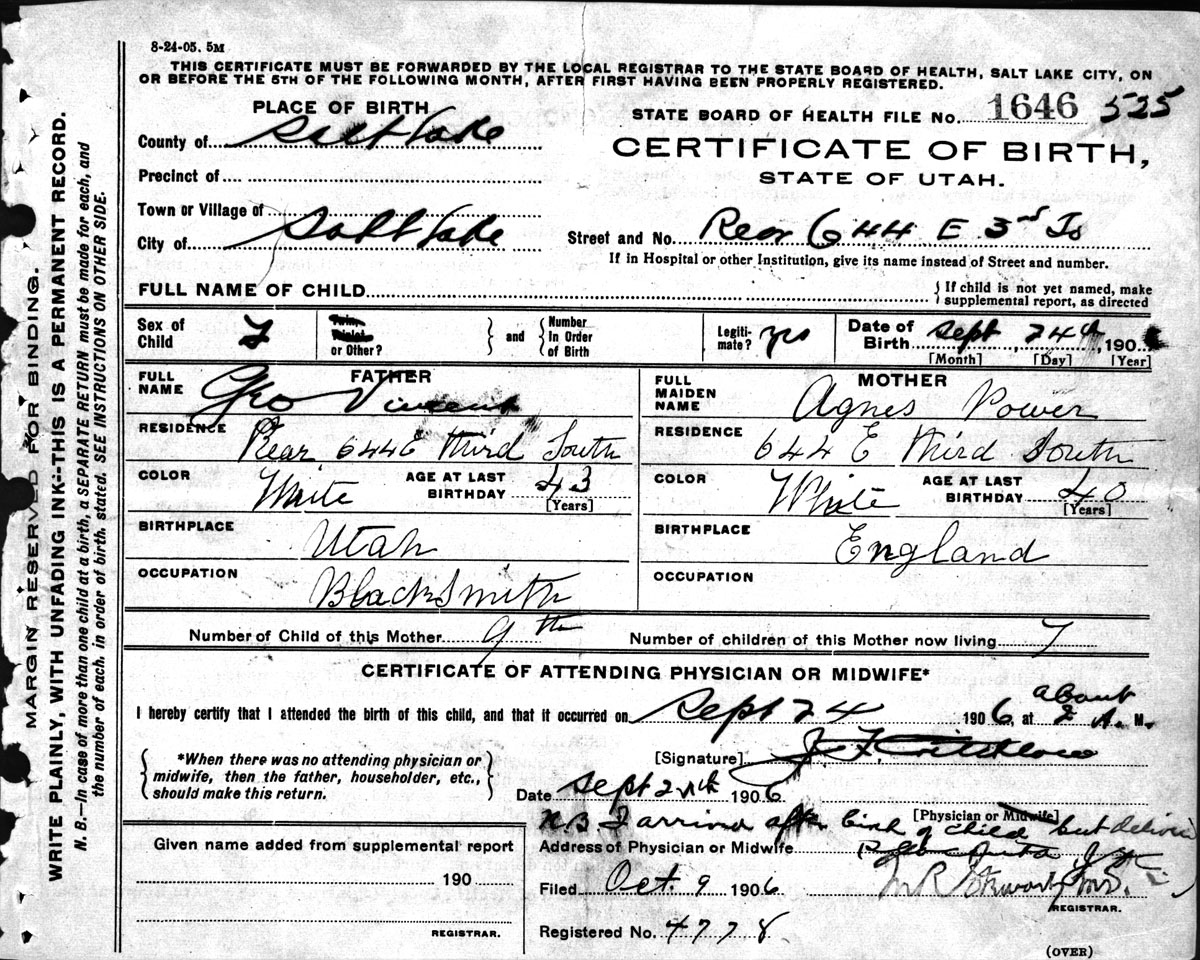 8-24-05. 5M
THIS CERTIFICATE MUST BE FORWARDED BY THE LOCAL REGISTRAR TO THE STATE BOARD OF HEALTH, SALT LAKE CITY, ON
OR BEFORE THE 5TH OF THE FOLLOWING MONTH, AFTER FIRST HAVING BEEN PROPERLY REGISTERED.
MARGIN RESERVED FOR BINDING.
WRITE PLAINLY, WITH UNFADING INK--THIS IS A PERMANENT RECORD.
N. B.—In case of more than one child at a birth, a SEPARATE RETURN must be made for each, and
the number of each, in order of birth, stated. SEE INSTRUCTIONS ON OTHER SIDE.
PLACE OF BIRTH
County of Salt Lake
Precinct of
Town or Village of
City of Salt Lake
STATE BOARD OF HEALTH FILE No. 1646 525
CERTIFICATE OF BIRTH,
STATE OF UTAH.
Street and No. Rear 644 E 3rd So
If in Hospital or other Institution, give its name instead of Street and number.
FULL NAME OF CHILD
If child is not yet named, make
supplemental report, as directed
Sex of Child F
Twin, Triplet or Other?
and
Number In Order of Birth
Legitimate? yes
Date of Birth Sept 24th, 190
[Month] [Day] [Year]
FATHER
FULL NAME Geo Vincent
RESIDENCE Rear 644 E Third South
COLOR White
AGE AT LAST BIRTHDAY 43 [Years]
BIRTHPLACE Utah
OCCUPATION BlackSmith
MOTHER
FULL MAIDEN NAME Agnes Power
RESIDENCE 644 E Third South
COLOR White
AGE AT LAST BIRTHDAY 40 [Years]
BIRTHPLACE England
OCCUPATION
Number of Child of this Mother 9th
Number of children of this Mother now living 7
CERTIFICATE OF ATTENDING PHYSICIAN OR MIDWIFE*
I hereby certify that I attended the birth of this child, and that it occurred on Sept 24 1906, at about 2 A. M.
*When there was no attending physician or
midwife, then the father, householder, etc.,
should make this return.
[Signature] J. F. Critchlow
Date Sept 1906
[Physician or Midwife]
N.B. I arrived after birth of child but
Address of Physician or Midwife
Given name added from supplemental report
190
REGISTRAR.
Filed Oct. 9 1906
M R Stewart, M.D.
REGISTRAR.
Registered No. 4778
(OVER)